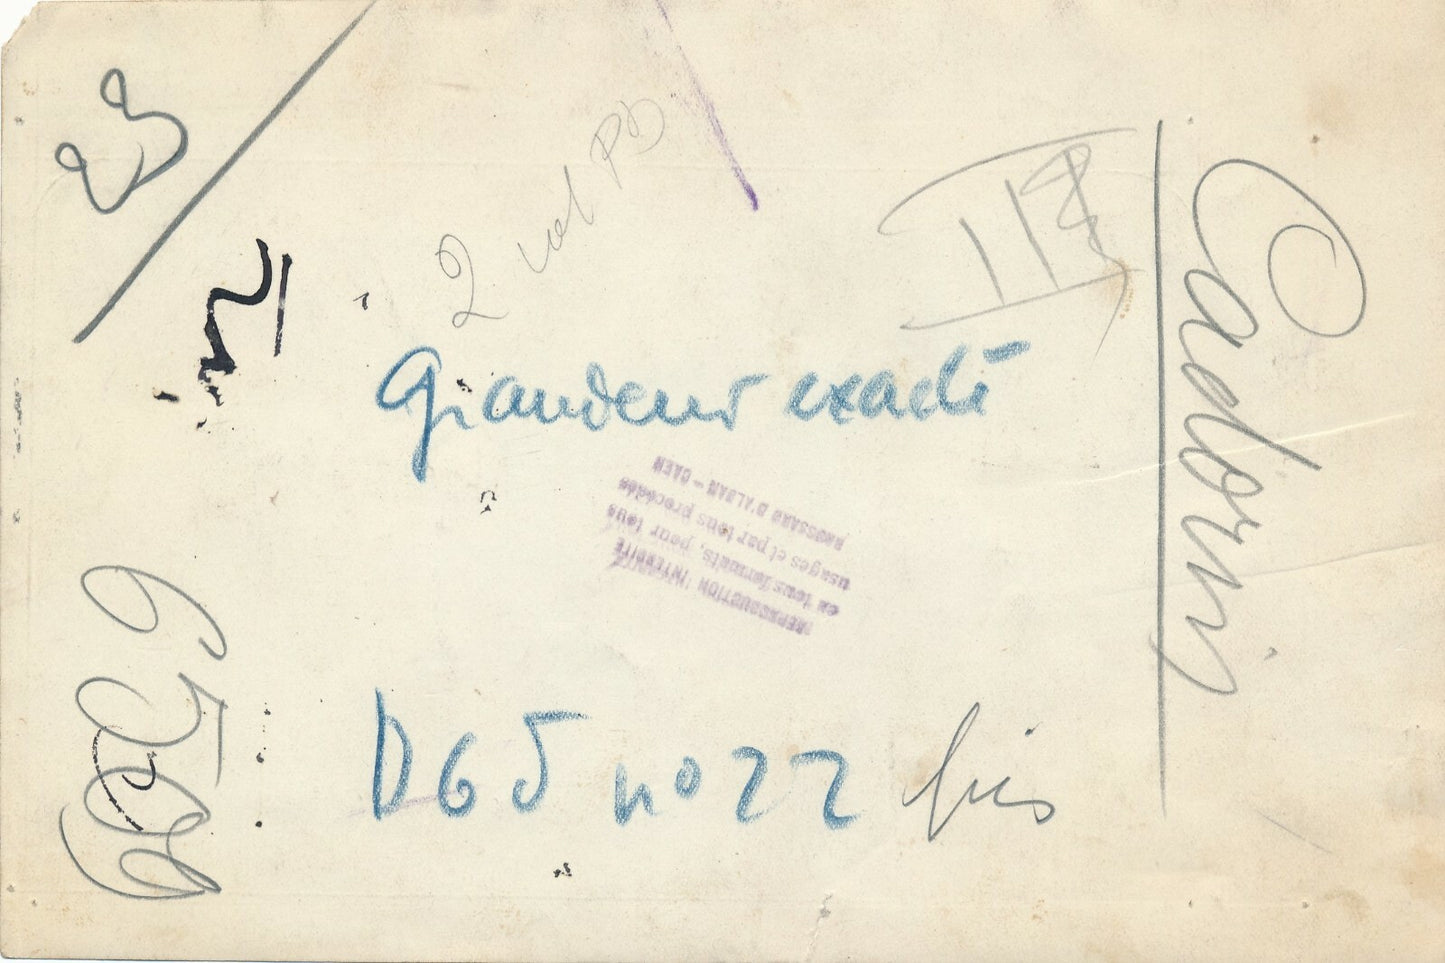 23
2 vol PD
III
Cadornis
Grandeur exacte
REPRODUCTION INTERDITE
en tous formats, pour tous
usages et par tous procédés
BROSSARD D'ALBAN - CAEN
6509
D65 no 22 bis